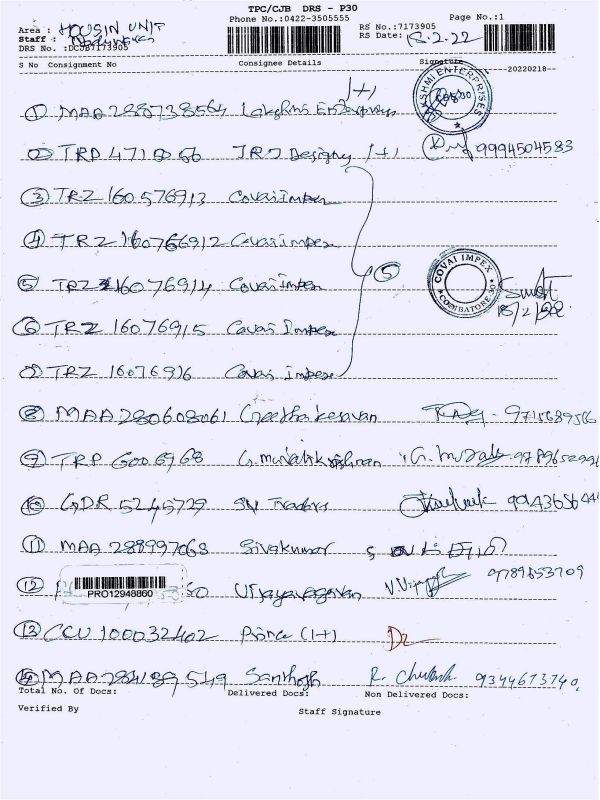 TPC/CJB DRS - P30
Phone No.:0422-3505555 Page No.:1
Area : HOUSING UNIT RS No.:7173905
Staff : RS Date: 18.2.22
DRS No. :DCJB7173905
S No Consignment No Consignee Details Signature 20220218
① MAA 288738564 Lakshmi Enterprises 1+1 LAKSHMI ENTERPRISES
② TRP 4710 JRJ Designs 1+1 9994504583
③ TRZ 160576913 Covai Impex
④ TRZ 160766912 Covai Impex
⑤ TRZ 16076914 Covai Impex ⑤ COVAI IMPEX COIMBATORE.30 18/2/22
⑥ TRZ 16076915 Covai Impex
⑦ TRZ 16076916 Covai Impex
⑧ MAA 280608061 Geetha kesavan 9715689566
⑨ TRP G. muralikrishnan G. Murali
⑩ GDR 5245729 Traders
⑪ MAA 288997068 Sivakumar
⑫ PRO12948860 50 Vijayaragavan 9789653709
⑬ CCU 100032402 Prince (1+1)
⑭ MAA 284189549 Santhosh R. 9344673740
Total No. Of Docs: Delivered Docs: Non Delivered Docs:
Verified By Staff Signature